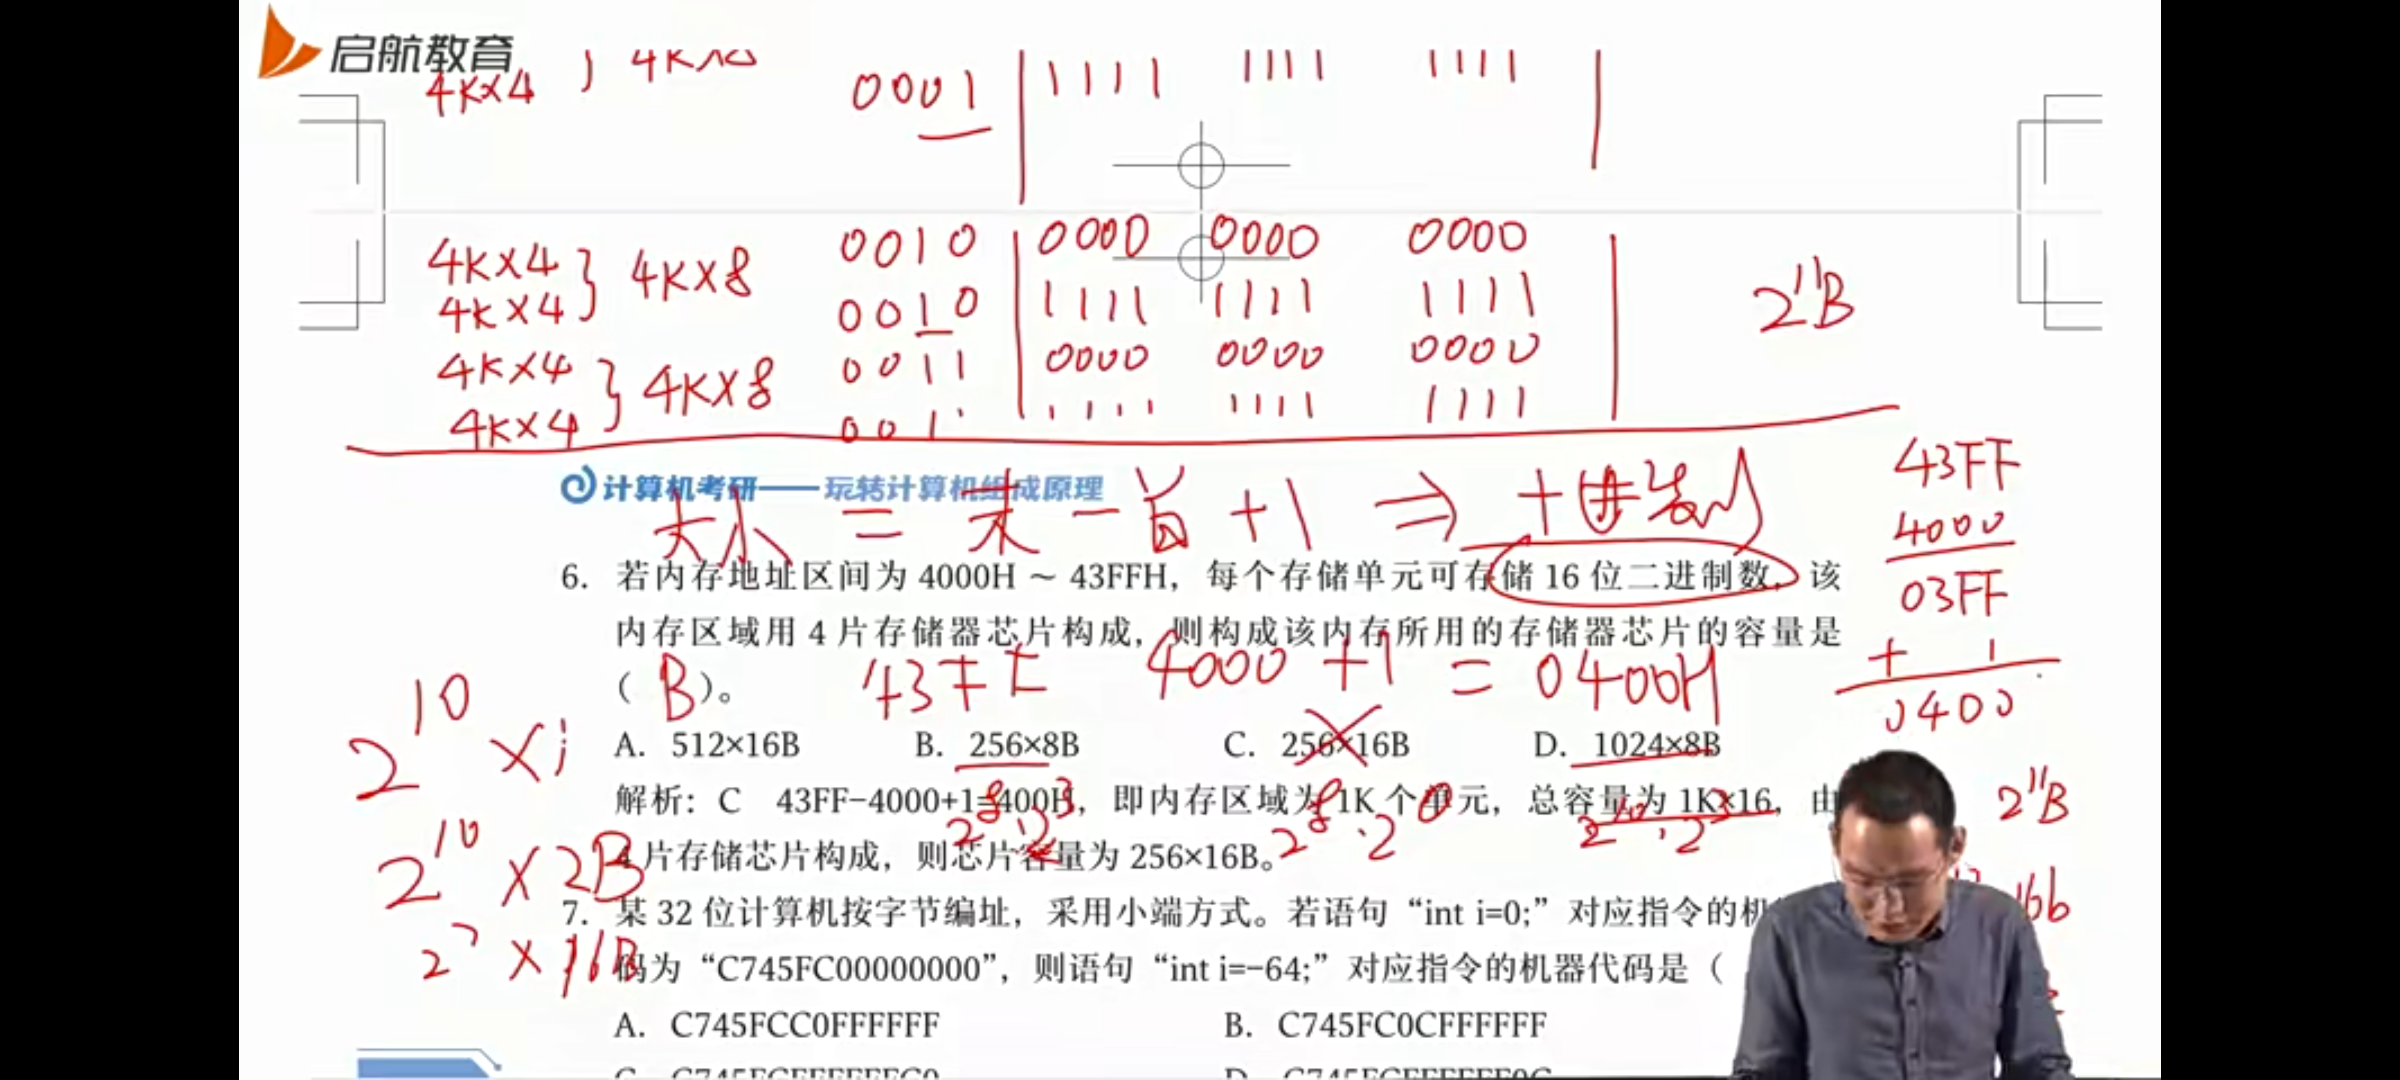 启航教育
4K×4 } 4K×8 0001 1111 1111 1111
4K×4 } 4K×8 0010 0000 0000 0000
4K×4 0010 1111 1111 1111 2^11B
4K×4 } 4K×8 0011 0000 0000 0000
4K×4 001 1111 1111 1111
计算机考研——玩转计算机组成原理
大小 = 末 - 首 + 1 ⇒ 十进制
43FF
4000
03FF
+ 1
0400
6. 若内存地址区间为 4000H ~ 43FFH，每个存储单元可存储 16 位二进制数，该
内存区域用 4 片存储器芯片构成，则构成该内存所用的存储器芯片的容量是
（ B ）。
43FF 4000 +1 = 0400H
A. 512×16B B. 256×8B C. 256×16B D. 1024×8B
2^8·2^3 2^8·2 2^10·2^3
解析：C 43FF-4000+1=400H，即内存区域为 1K 个单元，总容量为 1K×16，由
4 片存储芯片构成，则芯片容量为 256×16B。
2^10 ×
2^10 × 2B
× 16B
2^11B
16b
7. 某 32 位计算机按字节编址，采用小端方式。若语句“int i=0;”对应指令的机
码为“C745FC00000000”，则语句“int i=-64;”对应指令的机器代码是（
A. C745FCC0FFFFFF B. C745FC0CFFFFFF